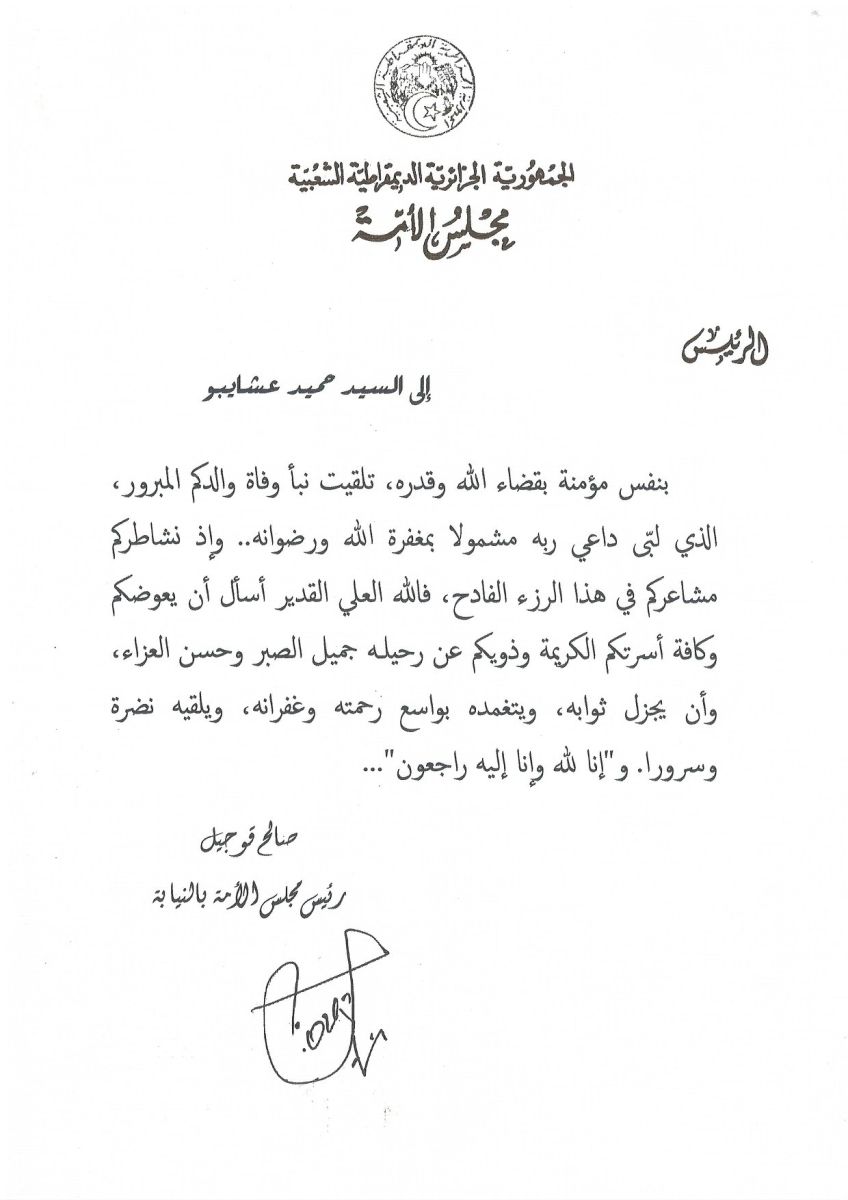 الجمهورية الجزائرية الديمقراطية الشعبية
الجمهُوريّة الجزائريّة الديمقراطيّة الشّعبيّة
مجْلسُ الأمّة
الرئيس
إلى السيد حميد عشايبو
بنفس مؤمنة بقضاء الله وقدره، تلقيت نبأ وفاة والدكم المبرور،
الذي لبّى داعي ربه مشمولا بمغفرة الله ورضوانه.. وإذ نشاطركم
مشاعركم في هذا الرزء الفادح، فالله العلي القدير أسأل أن يعوضكم
وكافة أسرتكم الكريمة وذويكم عن رحيله جميل الصبر وحسن العزاء،
وأن يجزل ثوابه، ويتغمده بواسع رحمته وغفرانه، ويلقيه نضرة
وسرورا. و"إنا لله وانا إليه راجعون"...
صالح قوجيل
رئيس مجلس الأمة بالنيابة